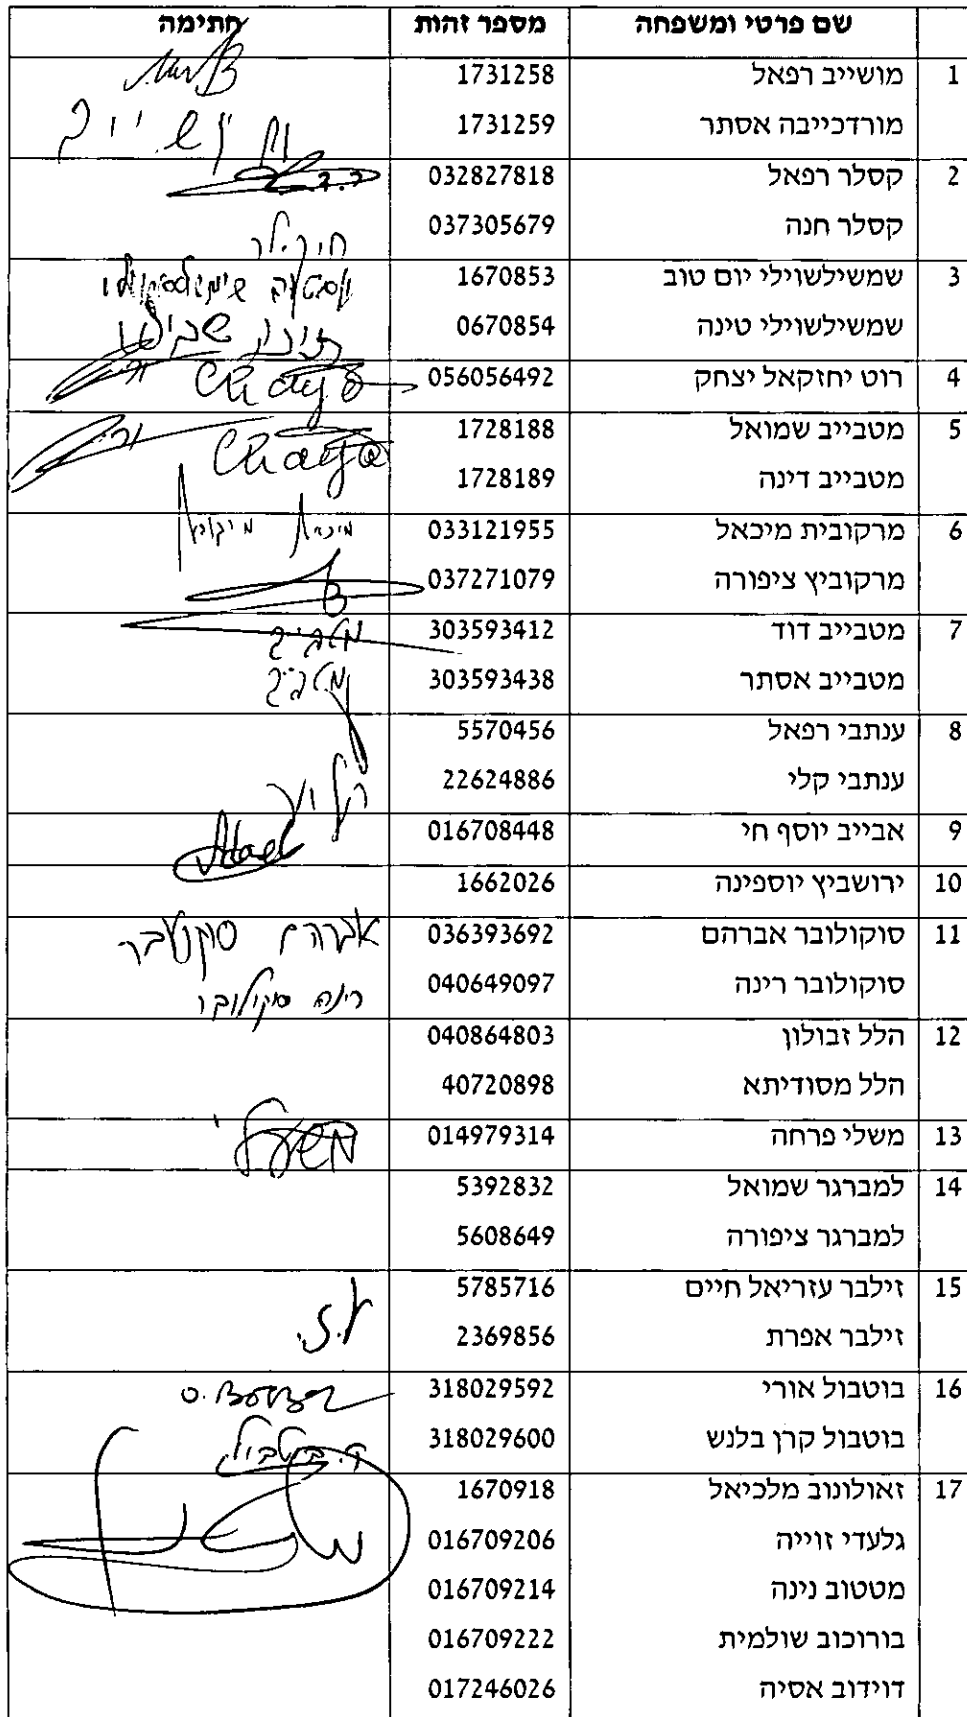 שם פרטי ומשפחה מספר זהות חתימה
1 מושייב רפאל 1731258
מורדכייבה אסתר 1731259
2 קסלר רפאל 032827818
קסלר חנה 037305679
3 שמשילשוילי יום טוב 1670853
שמשילשוילי טינה 0670854
4 רוט יחזקאל יצחק 056056492
5 מטבייב שמואל 1728188
מטבייב דינה 1728189
6 מרקובית מיכאל 033121955
מרקוביץ ציפורה 037271079
7 מטבייב דוד 303593412
מטבייב אסתר 303593438
8 ענתבי רפאל 5570456
ענתבי קלי 22624886
9 אבייב יוסף חי 016708448
10 ירושביץ יוספינה 1662026
11 סוקולובר אברהם 036393692 אברהם סוקולובר
סוקולובר רינה 040649097 רינה סוקולובר
12 הלל זבולון 040864803
הלל מסודיתא 40720898
13 משלי פרחה 014979314
14 למברגר שמואל 5392832
למברגר ציפורה 5608649
15 זילבר עזריאל חיים 5785716
זילבר אפרת 2369856
16 בוטבול אורי 318029592
בוטבול קרן בלנש 318029600
17 זאולונוב מלכיאל 1670918
גלעדי זוייה 016709206
מטטוב נינה 016709214
בורוכוב שולמית 016709222
דוידוב אסיה 017246026